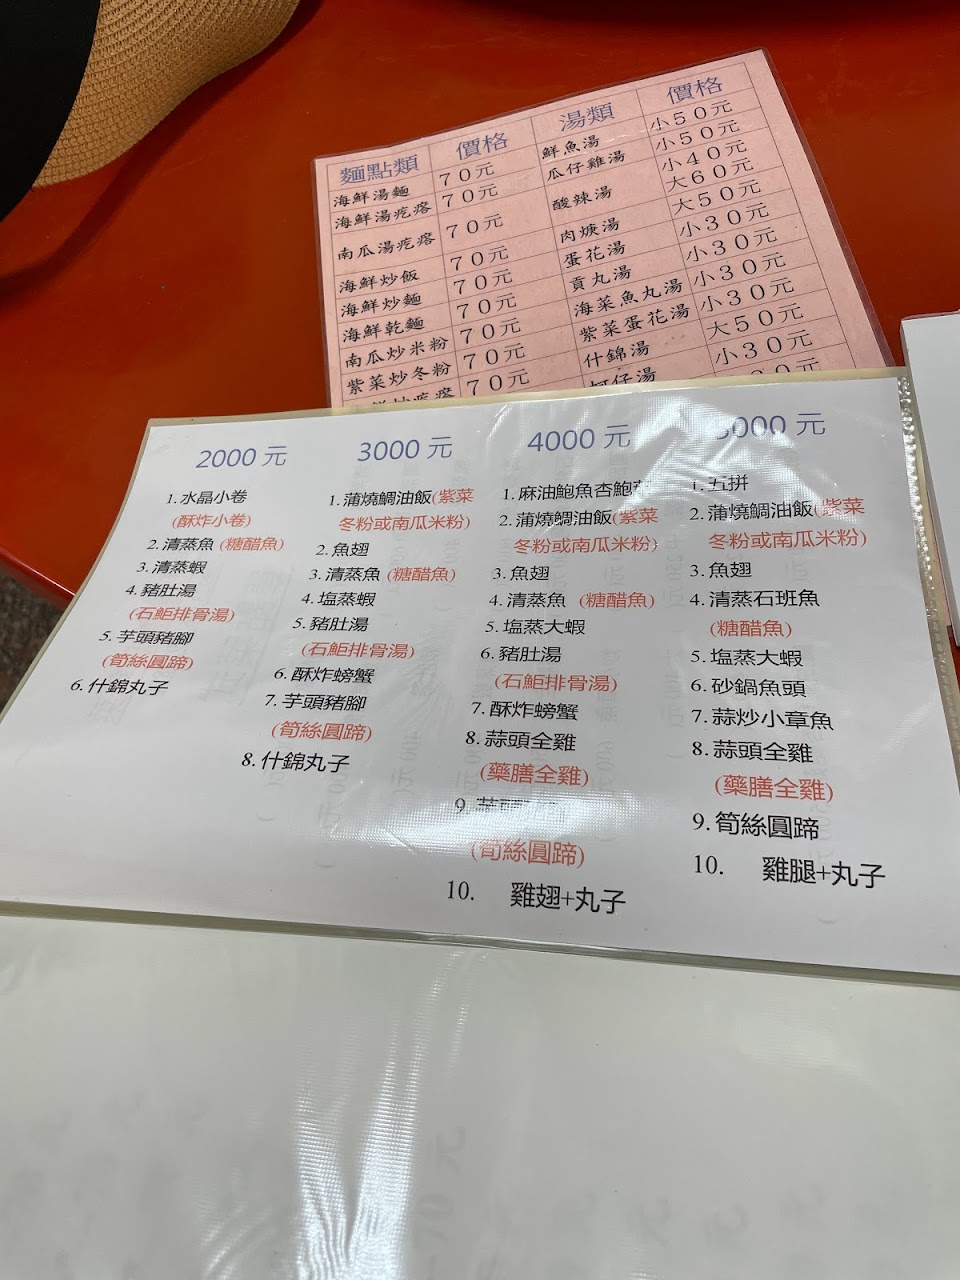 麵點類 價格 湯類 價格
海鮮湯麵 70元 鮮魚湯 小50元
海鮮湯疙瘩 70元 瓜仔雞湯 小50元
南瓜湯疙瘩 70元 酸辣湯 小40元
大60元
海鮮炒飯 70元 肉焿湯 大50元
海鮮炒麵 70元 蛋花湯 小30元
海鮮乾麵 70元 貢丸湯 小30元
南瓜炒米粉 70元 海菜魚丸湯 小30元
紫菜炒冬粉 70元 紫菜蛋花湯 小30元
炒疙瘩 70元 什錦湯 大50元
蚵仔湯 小30元
2000 元
1.水晶小卷
(酥炸小卷)
2.清蒸魚 (糖醋魚)
3.清蒸蝦
4.豬肚湯
(石鮔排骨湯)
5.芋頭豬腳
(筍絲圓蹄)
6.什錦丸子
3000 元
1.蒲燒鯛油飯(紫菜
冬粉或南瓜米粉)
2.魚翅
3.清蒸魚 (糖醋魚)
4.塩蒸蝦
5.豬肚湯
(石鮔排骨湯)
6.酥炸螃蟹
7.芋頭豬腳
(筍絲圓蹄)
8.什錦丸子
4000 元
1.麻油鮑魚杏鮑
2.蒲燒鯛油飯(紫菜
冬粉或南瓜米粉)
3.魚翅
4.清蒸魚 (糖醋魚)
5.塩蒸大蝦
6.豬肚湯
(石鮔排骨湯)
7.酥炸螃蟹
8.蒜頭全雞
(藥膳全雞)
9.芋頭
(筍絲圓蹄)
10. 雞翅+丸子
000 元
1.五拼
2.蒲燒鯛油飯(紫菜
冬粉或南瓜米粉)
3.魚翅
4.清蒸石班魚
(糖醋魚)
5.塩蒸大蝦
6.砂鍋魚頭
7.蒜炒小章魚
8.蒜頭全雞
(藥膳全雞)
9.筍絲圓蹄
10. 雞腿+丸子